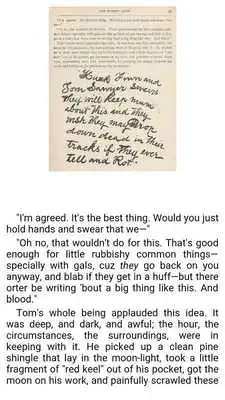 Huck Finn and
Tom Sawyer Swears
they will keep mum
about this and they
wish they may Drop
down dead in their
tracks if they ever
tell and Rot.
"I'm agreed. It's the best thing. Would you just
hold hands and swear that we—"
"Oh no, that wouldn't do for this. That's good
enough for little rubbishy common things—
specially with gals, cuz they go back on you
anyway, and blab if they get in a huff—but there
orter be writing 'bout a big thing like this. And
blood."
Tom's whole being applauded this idea. It
was deep, and dark, and awful; the hour, the
circumstances, the surroundings, were in
keeping with it. He picked up a clean pine
shingle that lay in the moon-light, took a little
fragment of "red keel" out of his pocket, got the
moon on his work, and painfully scrawled these